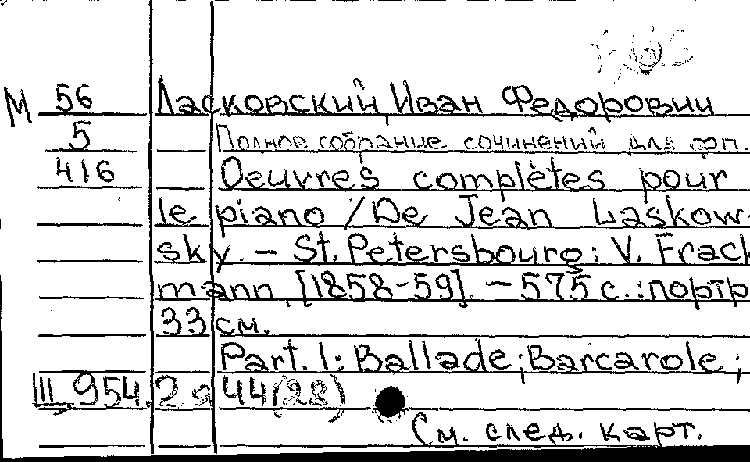 М 56 Ласковский, Иван Федорович
5 Полное собрание сочинений для фп.
416 Oeuvres complètes pour
le piano / De Jean Laskow-
sky. – St. Petersbourg: V. Frack-
mann, [1858-59]. – 575 с.: портр.
33 см.
Part. 1: Ballade; Barcarole;
III 954. 44(28)
См. след. карт.